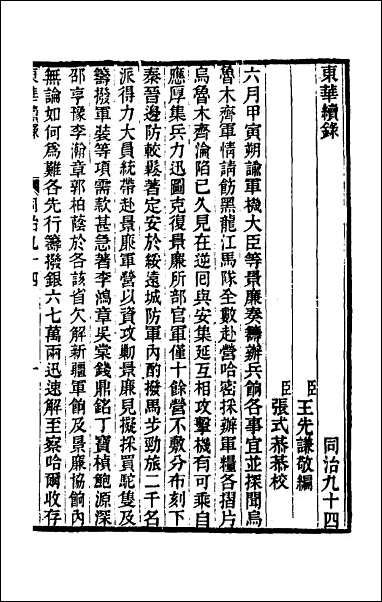 東華續錄
同治九十四
臣王先謙敬編
臣張式恭恭校
六月甲寅朔諭軍機大臣等景廉奏籌辦兵餉各事宜並探聞烏
魯木齊軍情請飭黑龍江馬隊全數赴營哈密採辦軍糧各摺片
烏魯木齊淪陷已久見在逆回與安集延互相攻擊機有可乘自
應厚集兵力迅圖克復景廉所部官軍僅十餘營不敷分布刻下
秦晉邊防較鬆著定安於綏遠城防軍內酌撥馬步勁旅二千名
派得力大員統帶赴景廉軍營以資攻勦景廉見擬採買駝隻及
籌撥軍裝等項需款甚急著李鴻章吳棠錢鼎銘丁寶楨鮑源深
邵亨豫李瀚章郭柏蔭於各該省欠解新疆軍餉及景廉協餉內
無論如何為難各先行籌撥銀六七萬兩迅速解至察哈爾收存
東華續錄
同治九十四
一